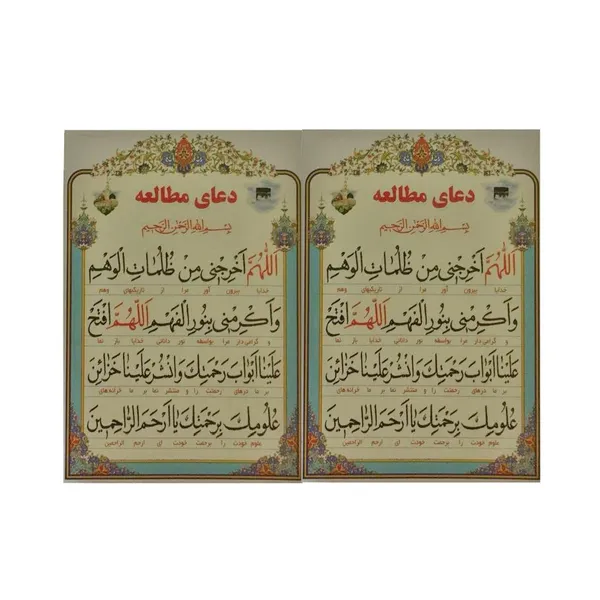 دعای مطالعه
بِسْمِ اللهِ الرَّحْمٰنِ الرَّحِیمِ
اَللّٰهُمَّ اَخْرِجْنی مِنْ ظُلُماتِ الْوَهْمِ
خدایا بیرون آور مرا از تاریکیهای وهم
وَاَکْرِمْنی بِنُورِ الْفَهْمِ اَللّٰهُمَّ افْتَحْ
و گرامی دار مرا بواسطه نور دانائی خدایا باز نما
عَلَیْنا اَبْوابَ رَحْمَتِكَ وَانْشُرْ عَلَیْنا خَزائِنَ
بر ما درهای رحمتت را و منتشر نما بر ما خزانه‌های
عُلُومِكَ بِرَحْمَتِكَ یا اَرْحَمَ الرّاحِمینَ
علوم خودت را برحمت خودت ای ارحم الراحمین
دعای مطالعه
بِسْمِ اللهِ الرَّحْمٰنِ الرَّحِیمِ
اَللّٰهُمَّ اَخْرِجْنی مِنْ ظُلُماتِ الْوَهْمِ
خدایا بیرون آور مرا از تاریکیهای وهم
وَاَکْرِمْنی بِنُورِ الْفَهْمِ اَللّٰهُمَّ افْتَحْ
و گرامی دار مرا بواسطه نور دانائی خدایا باز نما
عَلَیْنا اَبْوابَ رَحْمَتِكَ وَانْشُرْ عَلَیْنا خَزائِنَ
بر ما درهای رحمتت را و منتشر نما بر ما خزانه‌های
عُلُومِكَ بِرَحْمَتِكَ یا اَرْحَمَ الرّاحِمینَ
علوم خودت را برحمت خودت ای ارحم الراحمین